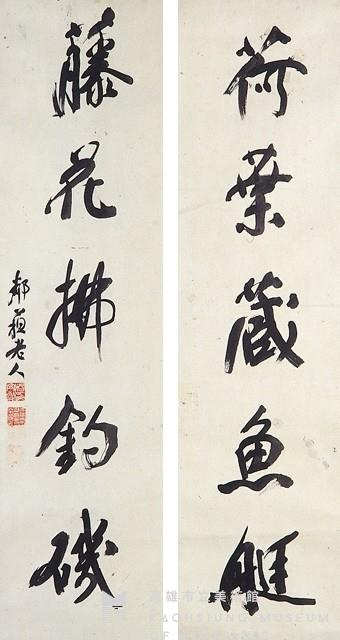 荷葉藏魚艇
藤花拂釣磯
鄰蘇老人
高雄市立美術館
KAOHSIUNG MUSEUM
OF